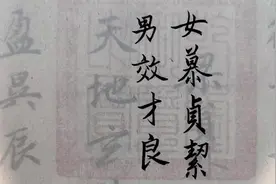 女慕貞絜
男效才良
天地玄
盈昃辰